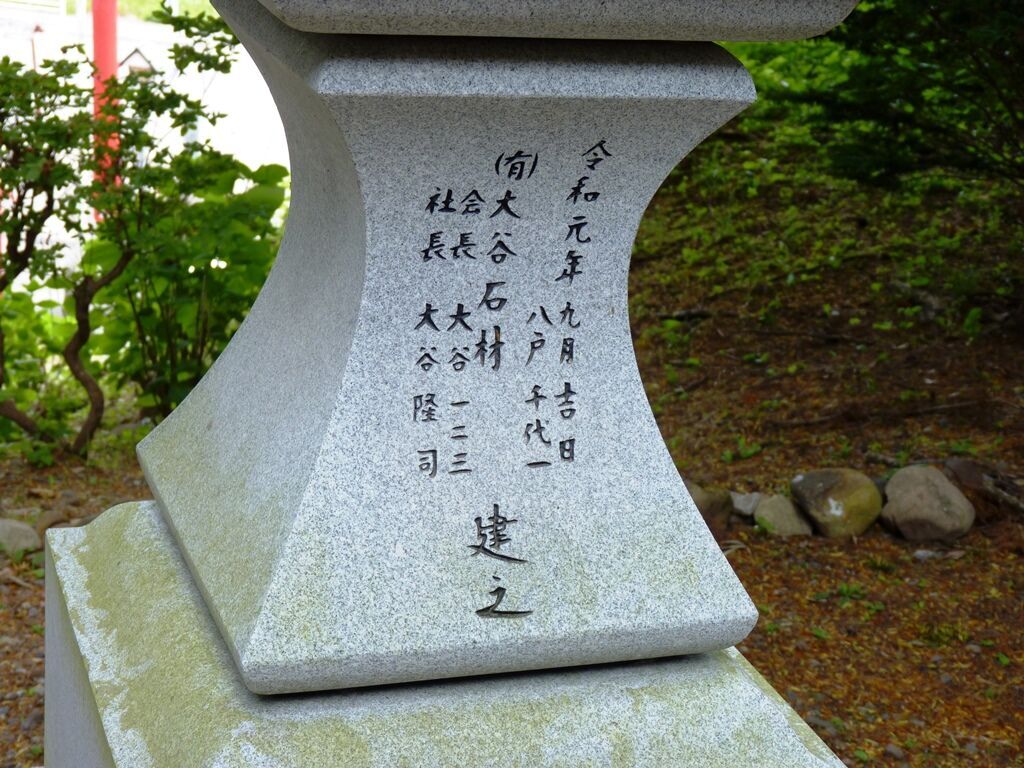 令和元年九月吉日
八戸千代一
(有)大谷石材
会長 大谷一二三
社長 大谷隆司
建之